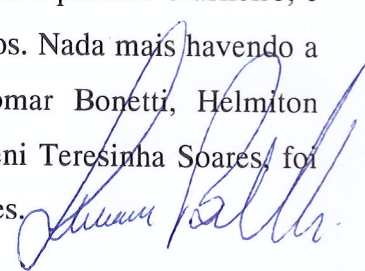 os. Nada mais havendo a
omar Bonetti, Helmiton
eni Teresinha Soares, foi
es.